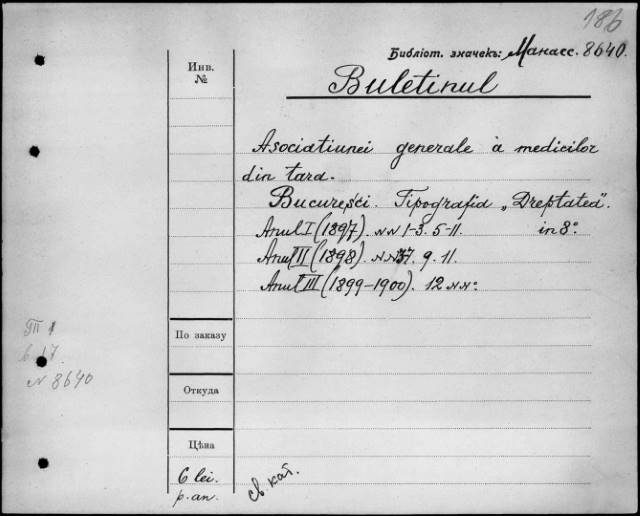 186
Библіот. значекъ: Манасс. 8640.
Инв.
№
Buletinul
Asociatiunei generale a medicilor
din tara.
Bucureşci. Tipografia „Dreptatea".
Anul I (1897). NN 1-3. 5-11. in 8°.
Anul II (1898). NN 37. 9. 11.
Anul III (1899-1900). 12 NN°.
По заказу
N 8640
Откуда
Цѣна
6 lei.
p. an.
св. кат.